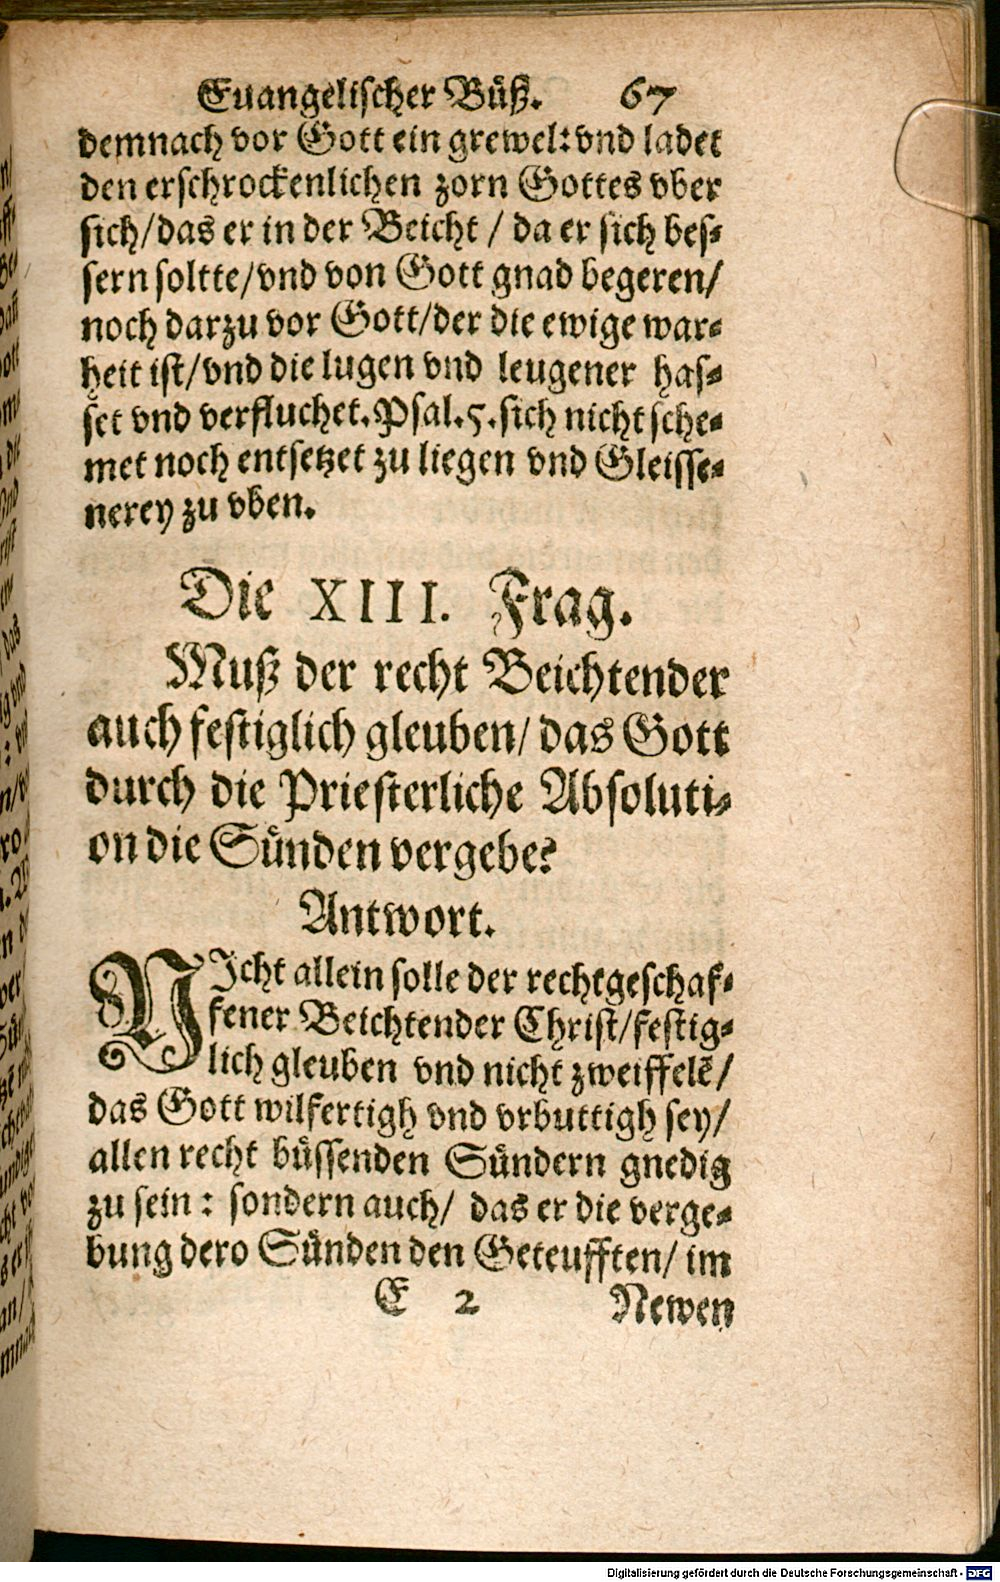 Euangelischer Bůß. 67
demnach vor Gott ein grewel: vnd ladet
den erschrockenlichen zorn Gottes vber
sich/das er in der Beicht / da er sich bes-
sern soltte/vnd von Gott gnad begeren/
noch darzu vor Gott/der die ewige war-
heit ist/vnd die lugen vnd leugener has-
set vnd verfluchet. Psal. 5. sich nicht sche-
met noch entsetzet zu liegen vnd Gleisse-
nerey zu vben.
Die XIII. Frag.
Muß der recht Beichtender
auch festiglich gleuben/ das Gott
durch die Priesterliche Absoluti-
on die Sünden vergebe?
Antwort.
NIcht allein solle der rechtgeschaf-
fener Beichtender Christ/festig-
lich gleuben vnd nicht zweiffelẽ/
das Gott wilfertigh vnd vrbuttigh sey/
allen recht büssenden Sündern gnedig
zu sein: sondern auch/ das er die verge-
bung dero Sünden den Geteufften/ im
E 2 Newen
Digitalisierung gefördert durch die Deutsche Forschungsgemeinschaft - DFG